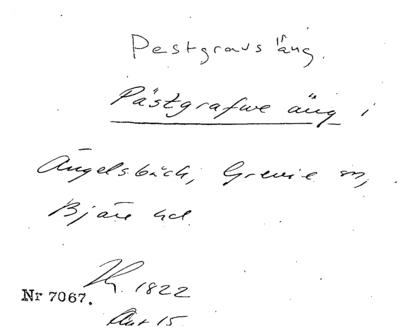 Pestgravs äng.
Pästgrafwe äng i
Ängelsbäck, Grevie sn,
Bjäre hd.
1822
Nr 7067.
Akt 15